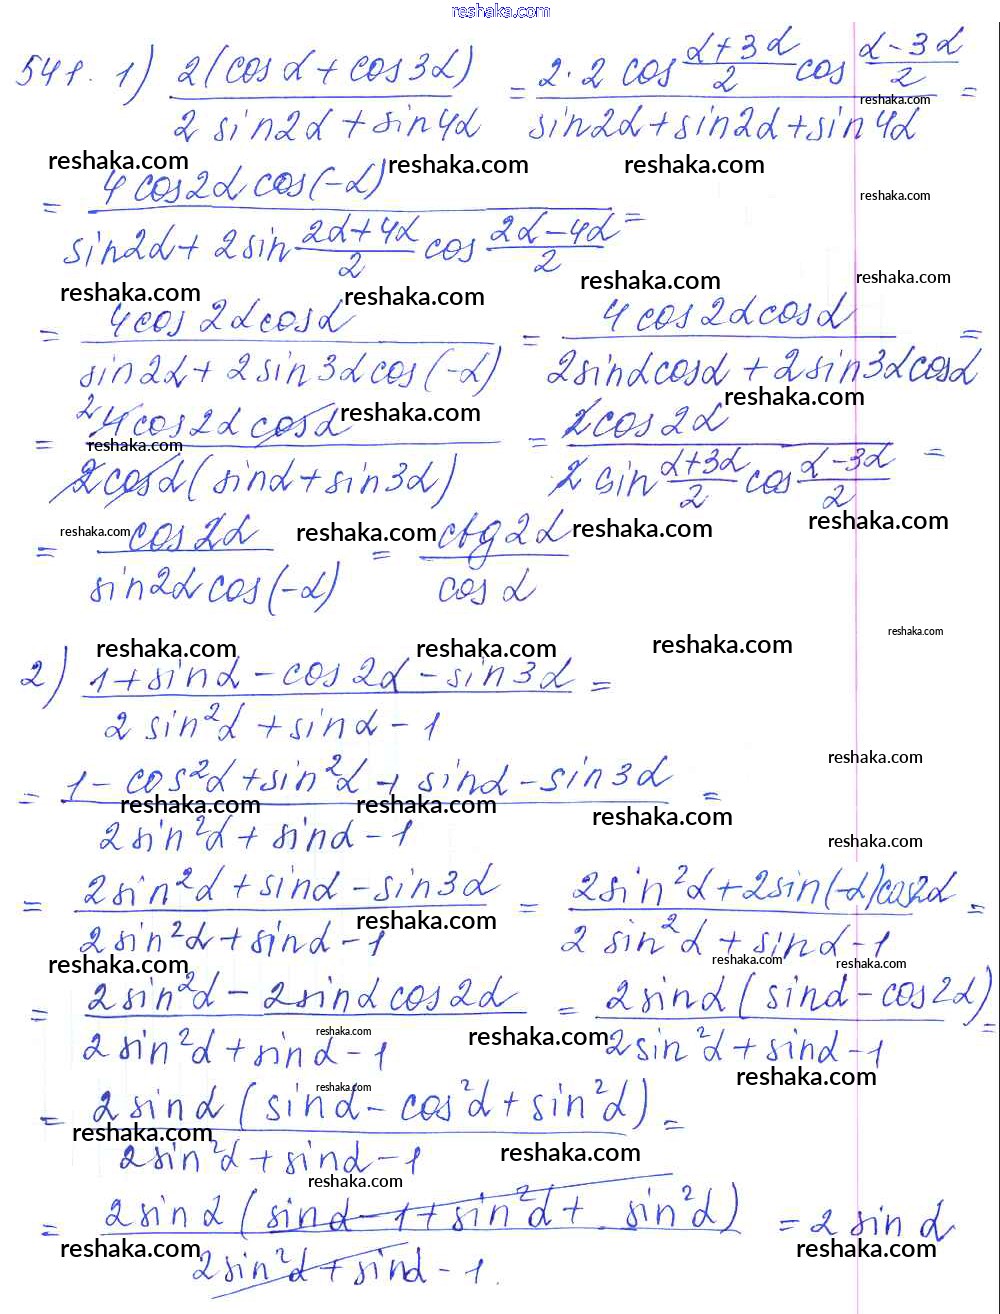 reshaka.com
541. 1) 2(cos α + cos 3α) / (2 sin2α + sin 4α) = 2·2 cos (α+3α)/2 cos (α-3α)/2 / (sin2α + sin2α + sin 4α) =
reshaka.com
reshaka.com reshaka.com reshaka.com
= 4cos2α cos(-α) / (sin2α + 2sin (2α+4α)/2 cos (2α-4α)/2) =
reshaka.com
reshaka.com reshaka.com reshaka.com reshaka.com
= 4cos 2α cos α / (sin2α + 2 sin 3α cos(-α)) = 4 cos 2α cos α / (2sin α cos α + 2 sin 3α cos α) =
reshaka.com reshaka.com
= 2 4cos 2α cos α / (2cos α (sin α + sin 3α)) = 2cos 2α / (2 sin (α+3α)/2 cos (α-3α)/2) =
reshaka.com
reshaka.com reshaka.com reshaka.com reshaka.com
= cos 2α / (sin2α cos(-α)) = ctg 2α / cos α
reshaka.com
reshaka.com reshaka.com reshaka.com
2) (1 + sin α - cos 2α - sin 3α) / (2 sin²α + sin α - 1) =
reshaka.com
= (1 - cos²α + sin²α + sin α - sin 3α) / (2 sin²α + sin α - 1) =
reshaka.com reshaka.com reshaka.com
reshaka.com
= (2 sin²α + sin α - sin 3α) / (2 sin²α + sin α - 1) = (2sin²α + 2sin(-α)cos2α) / (2 sin²α + sin α - 1) =
reshaka.com
reshaka.com reshaka.com reshaka.com
= (2 sin²α - 2 sin α cos 2α) / (2 sin²α + sin α - 1) = 2 sin α (sin α - cos 2α) / (2sin²α + sin α - 1) =
reshaka.com reshaka.com
reshaka.com
= 2 sin α (sin α - cos²α + sin²α) / (2sin²α + sin α - 1) =
reshaka.com
reshaka.com reshaka.com
reshaka.com
= 2 sin α (sin α - 1 + sin²α + sin²α) / (2sin²α + sin α - 1.) = 2 sin α
reshaka.com reshaka.com